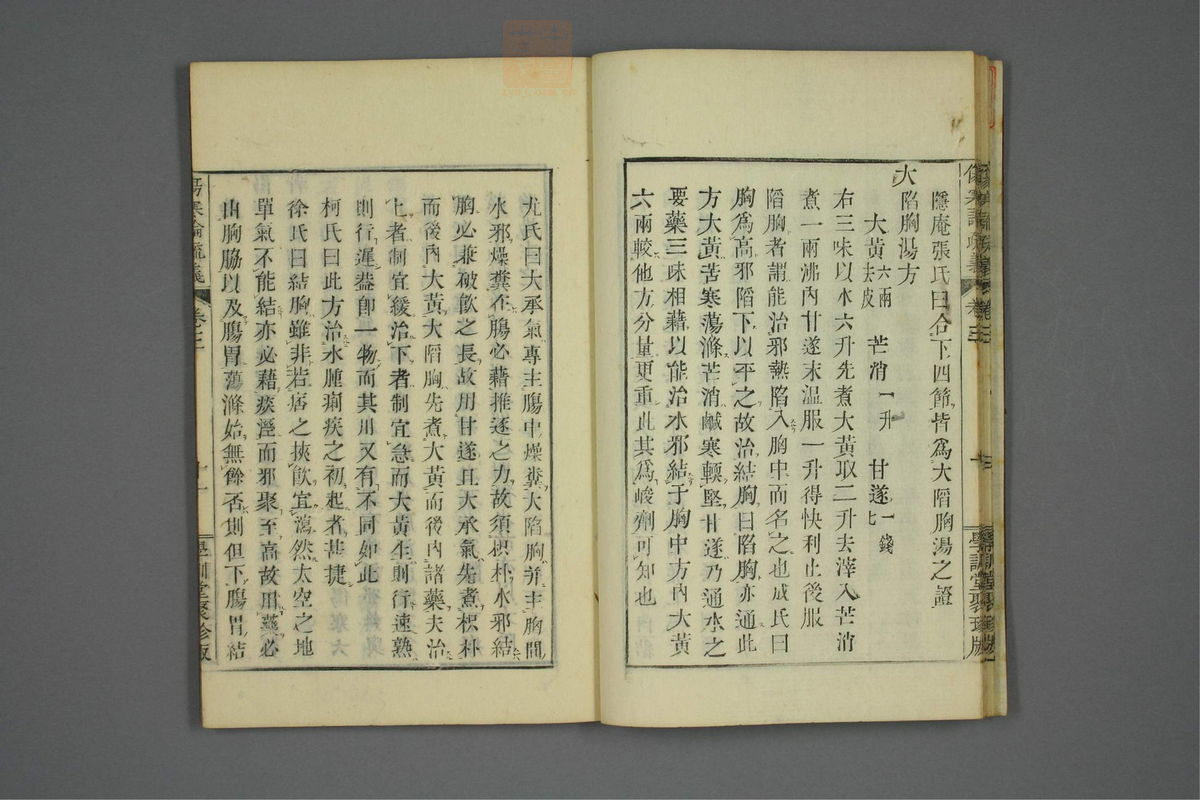 傷寒論疏義 卷三 十 學訓堂聚珍版
隱庵張氏曰合下四節皆爲大陷胸湯之證
大陷胸湯方
大黃六兩去皮 芒消一升 甘遂一錢匕
右三味以水六升先煮大黃取二升去滓入芒消
煮一兩沸內甘遂末温服一升得快利止後服
陷胸者謂能治邪熱陷入胸中而名之也成氏曰
胸爲高邪陷下以平之故治結胸曰陷胸亦通此
方大黃苦寒蕩滌芒消鹹寒輭堅甘遂乃通水之
要藥三味相藉以能治水邪結于胸中方內大黃
六兩較他方分量更重此其爲峻劑可知也
尤氏曰大承氣專主腸中燥糞大陷胸并主胸間
水邪燥糞在腸必藉推逐之力故須枳朴水邪結
胸必兼破飲之長故用甘遂且大承氣先煮枳朴
而後內大黃大陷胸先煮大黃而後內諸藥夫治
上者制宜緩治下者制宜急而大黃生則行速熟
則行遲蓋卽一物而其用又有不同如此
柯氏曰此方治水腫痢疾之初起者甚捷
徐氏曰結胸雖非若痞之挾飲宜瀉然太空之地
單氣不能結亦必藉痰溼而邪聚至高故用蕩必
由胸脇以及腸胃蕩滌始無餘否則但下腸胃結
傷寒論疏義 卷三 學訓堂聚珍版